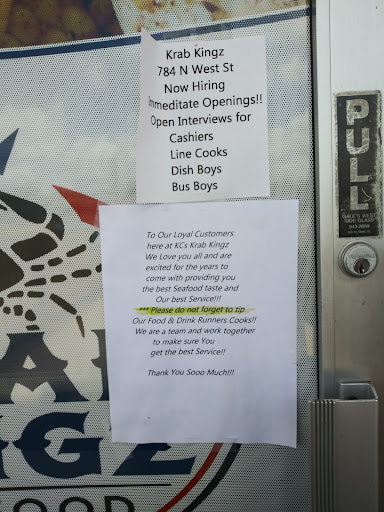 Krab Kingz
784 N West St
Now Hiring
Immeditate Openings!!
Open Interviews for
Cashiers
Line Cooks
Dish Boys
Bus Boys
PULL
To Our Loyal Customers
here at KCs Krab Kingz
We Love you all and are
excited for the years to
come with providing you
the best Seafood taste and
Our best Service!!!
*** Please do not forget to tip
Our Food & Drink Runners Cooks!!
We are a team and work together
to make sure You
get the best Service!!
Thank You Sooo Much!!!